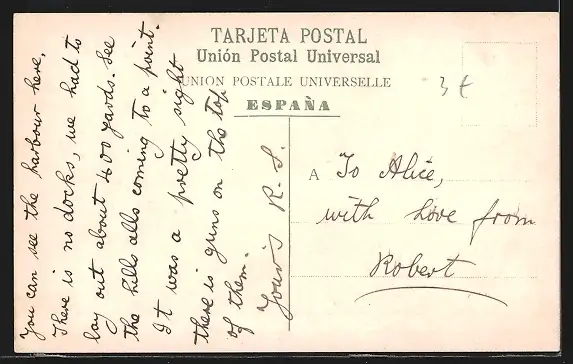 TARJETA POSTAL
Unión Postal Universal
UNION POSTALE UNIVERSELLE
ESPAÑA
3 €
You can see the harbour here.
There is no docks, we had to
lay out about 400 yards. See
the hills alls coming to a point.
It was a pretty sight
there is guns on the top
of them.
Your's R. S.
A To Alice,
with Love from
Robert